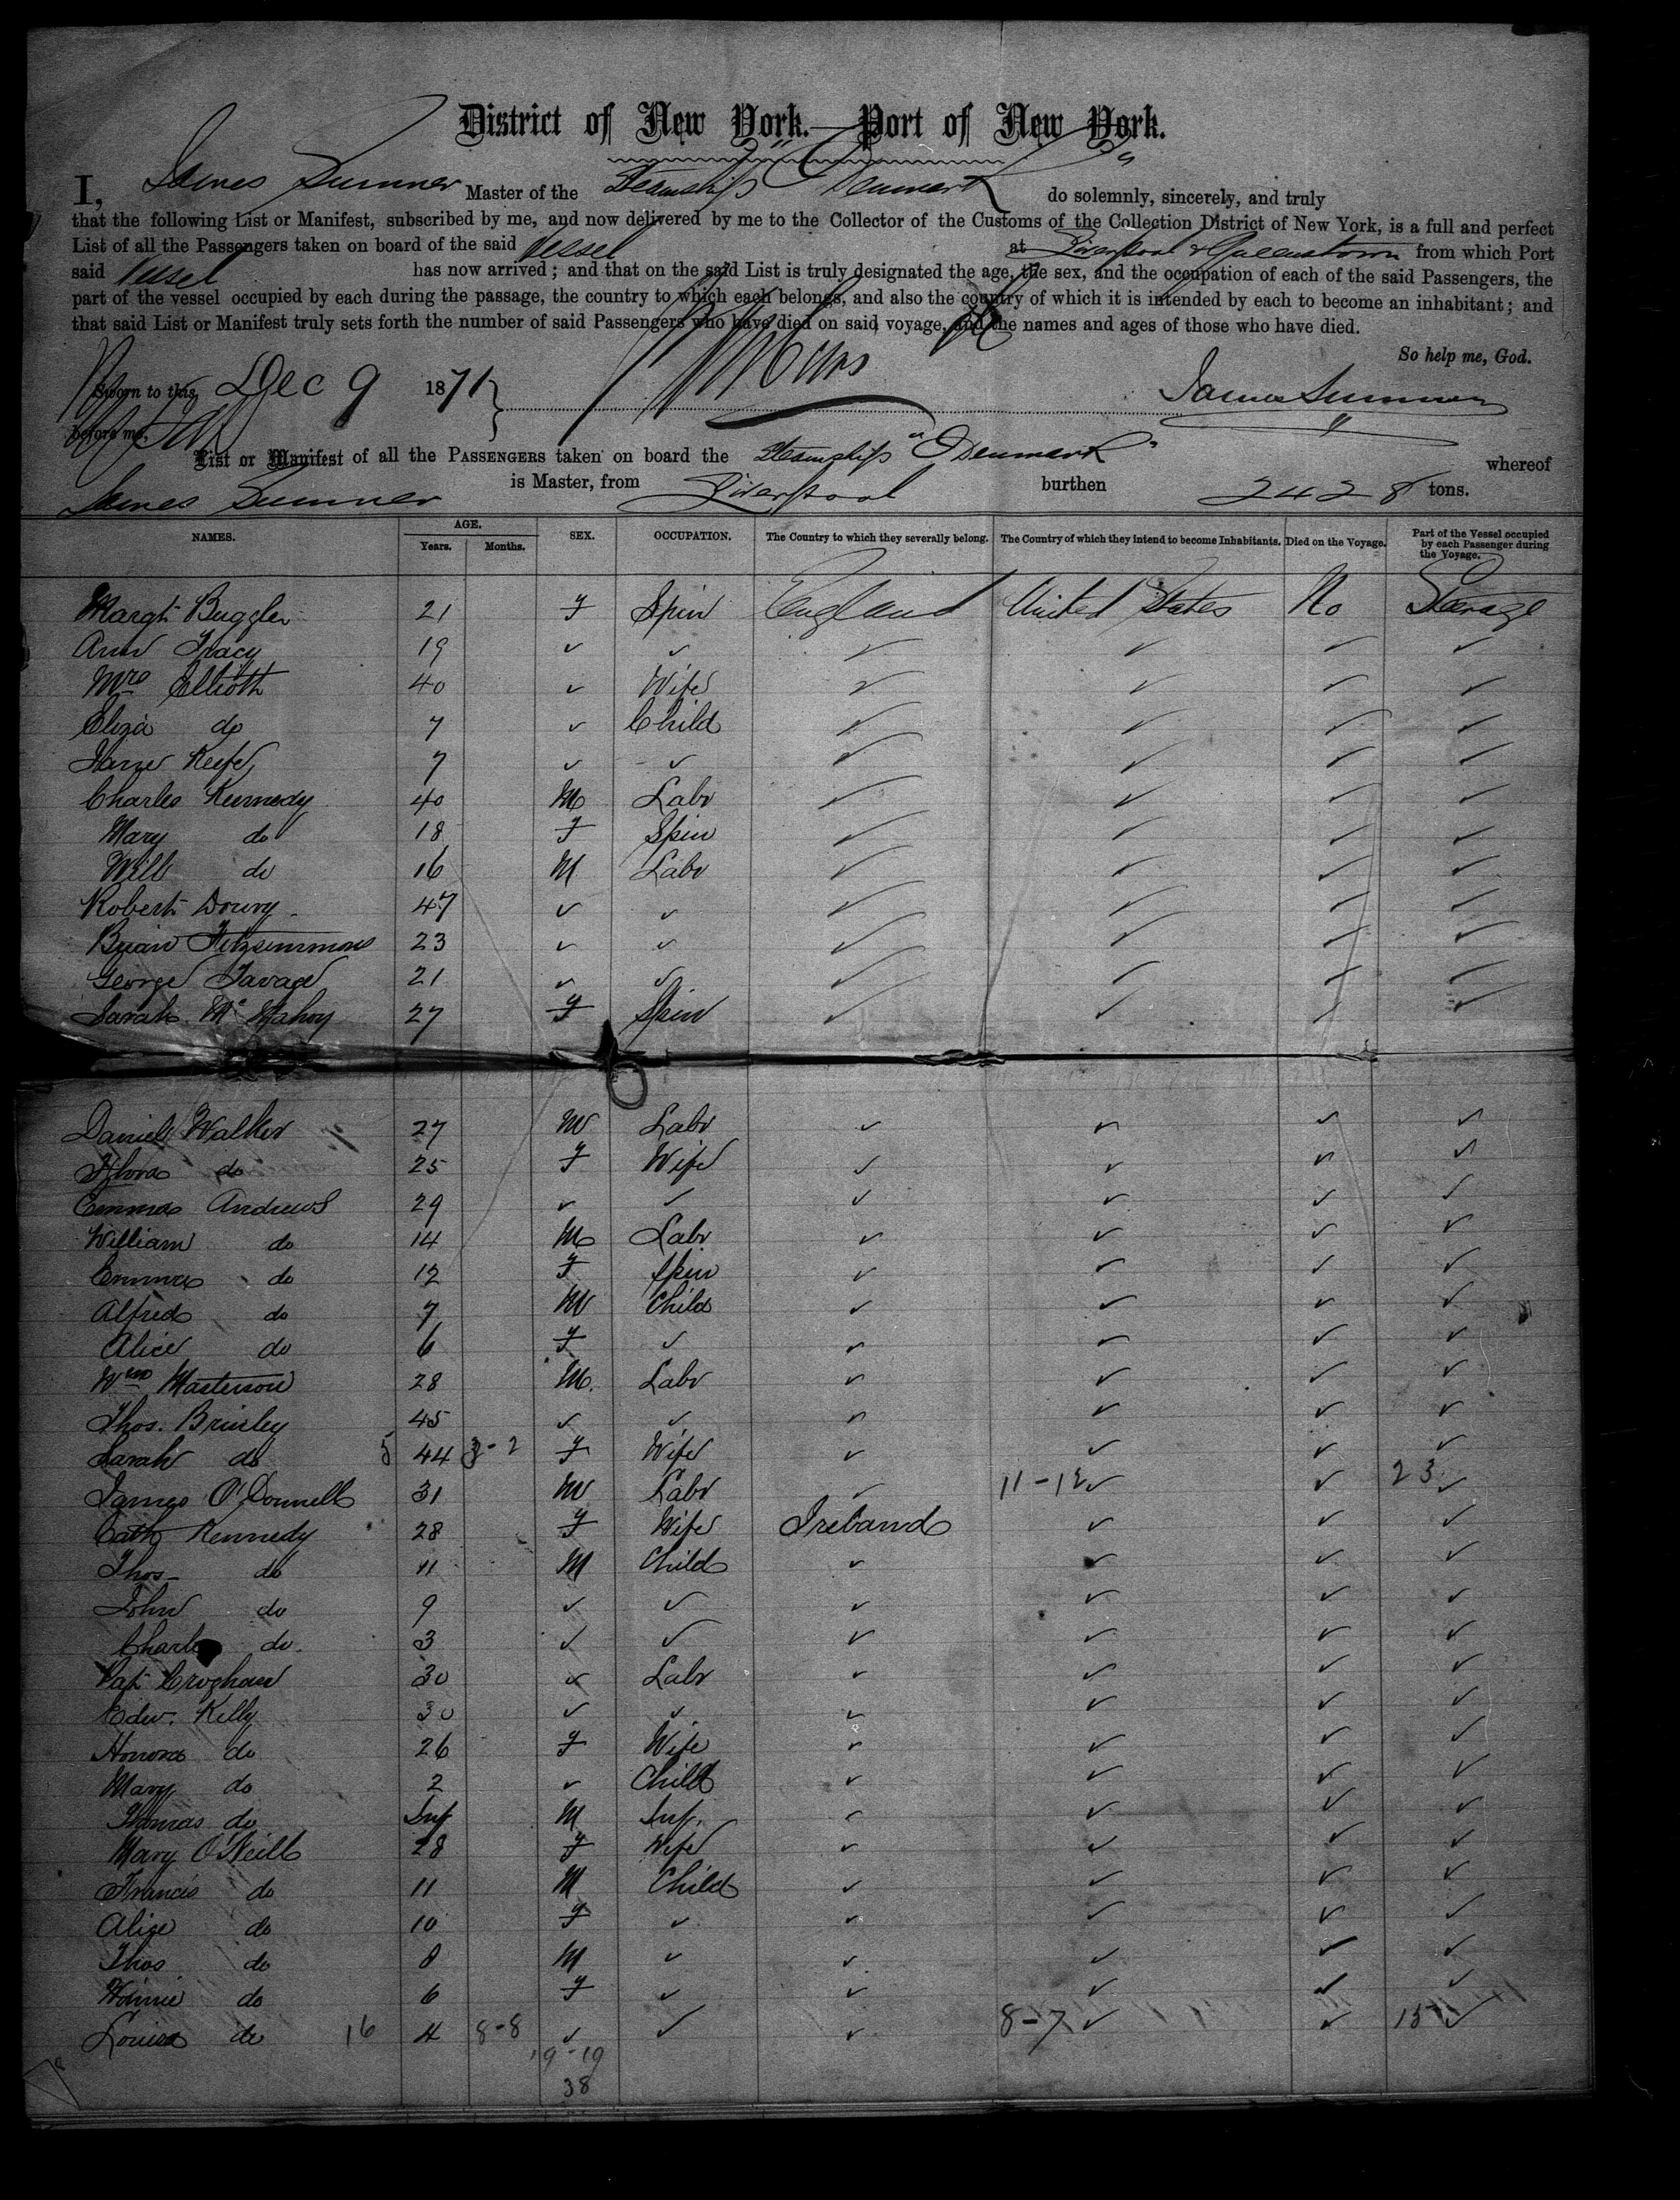 District of New York.—Port of New York.
I, James Sumner Master of the Steamship "Denmark" do solemnly, sincerely, and truly
that the following List or Manifest, subscribed by me, and now delivered by me to the Collector of the Customs of the Collection District of New York, is a full and perfect
List of all the Passengers taken on board of the said Vessel at Liverpool & Queenstown from which Port
said Vessel has now arrived; and that on the said List is truly designated the age, the sex, and the occupation of each of the said Passengers, the
part of the vessel occupied by each during the passage, the country to which each belongs, and also the country of which it is intended by each to become an inhabitant; and
that said List or Manifest truly sets forth the number of said Passengers who have died on said voyage, and the names and ages of those who have died.
So help me, God.
Sworn to this, Dec 9 1871 James Sumner
before me,
List or Manifest of all the PASSENGERS taken on board the Steamship "Denmark" whereof
James Sumner is Master, from Liverpool burthen 2428 tons.
NAMES. AGE. Years. Months. SEX. OCCUPATION. The Country to which they severally belong. The Country of which they intend to become Inhabitants. Died on the Voyage. Part of the Vessel occupied by each Passenger during the Voyage.
Margt Buggler 21 F Spin England United States No Steerage
Ann Tracy 19 ✓ ✓ ✓ ✓ ✓ ✓
Mrs Elliott 40 ✓ Wife ✓ ✓ ✓ ✓
Eliza do 7 ✓ Child ✓ ✓ ✓ ✓
Keefe 7 ✓ ✓ ✓ ✓ ✓ ✓
Charles Kennedy 40 M Labr ✓ ✓ ✓ ✓
Mary do 18 F Spin ✓ ✓ ✓ ✓
Will do 16 M Labr ✓ ✓ ✓ ✓
Robert 47 ✓ ✓ ✓ ✓ ✓ ✓
Brian Fitzsimmons 23 ✓ ✓ ✓ ✓ ✓ ✓
George Savage 21 ✓ ✓ ✓ ✓ ✓ ✓
Sarah Mc Mahon 27 F Spin ✓ ✓ ✓ ✓
Daniel Walker 27 M Labr ✓ ✓ ✓ ✓
Flora do 25 F Wife ✓ ✓ ✓ ✓
Emma Andrews 29 ✓ ✓ ✓ ✓ ✓ ✓
William do 14 M Labr ✓ ✓ ✓ ✓
Emma do 12 F Spin ✓ ✓ ✓ ✓
Alfred do 7 M Child ✓ ✓ ✓ ✓
Alice do 6 F ✓ ✓ ✓ ✓ ✓
Wm Masterson 28 M. Labr ✓ ✓ ✓ ✓
Thos. Brinley 45 ✓ ✓ ✓ ✓ ✓ ✓
Sarah do 5 44 3-2 F Wife ✓ ✓ ✓ ✓
James O'Donnell 31 M Labr ✓ 11-12 ✓ ✓ 23 ✓
Cath Kennedy 28 F Wife Ireland ✓ ✓ ✓
Thos do 11 M Child ✓ ✓ ✓ ✓
John do 9 ✓ ✓ ✓ ✓ ✓ ✓
Charles do 3 ✓ ✓ ✓ ✓ ✓ ✓
Pat Croghan 30 ✓ Labr ✓ ✓ ✓ ✓
Edw. Kelly 30 ✓ ✓ ✓ ✓ ✓ ✓
Honora do 26 F Wife ✓ ✓ ✓ ✓
Mary do 2 ✓ Child ✓ ✓ ✓ ✓
Thomas do Inf M Inf. ✓ ✓ ✓ ✓
Mary O'Neill 28 F Wife ✓ ✓ ✓ ✓
Francis do 11 M Child ✓ ✓ ✓ ✓
Alice do 10 F ✓ ✓ ✓ ✓ ✓
Thos do 8 M ✓ ✓ ✓ ✓ ✓
Winnie do 6 F ✓ ✓ ✓ ✓ ✓
Louisa do 16 4 8-8 ✓ ✓ ✓ 8-7 ✓ ✓ 15 ✓
19-19
38